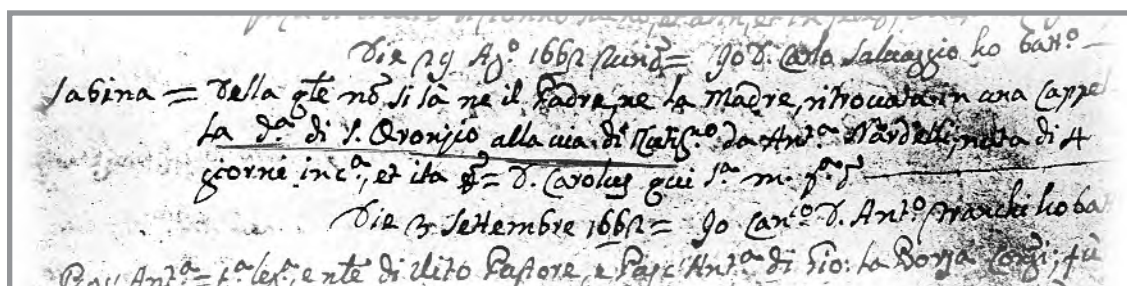 Die 29 Ag.º 1662 = Io D. Carlo Saluaggio ho batt.º
Sabina = Della q̃le nõ si sà ne il Padre, ne la Madre, ritrouata in una Cappel
la d.ª di S. Oronzio alla uia di da Ant.ª Nardelli, nata di 4
giorni in c.ª, et ita = D. Carolus qui s.ª m.
Die 3 Settembre 1662 = Io Can.co D. Ant.º Franchi ho batt
Ant.ª = f.ª leg.ª, e nle di Vito Pastore, e Pasc' Ant.ª di Gio: la Borza fù